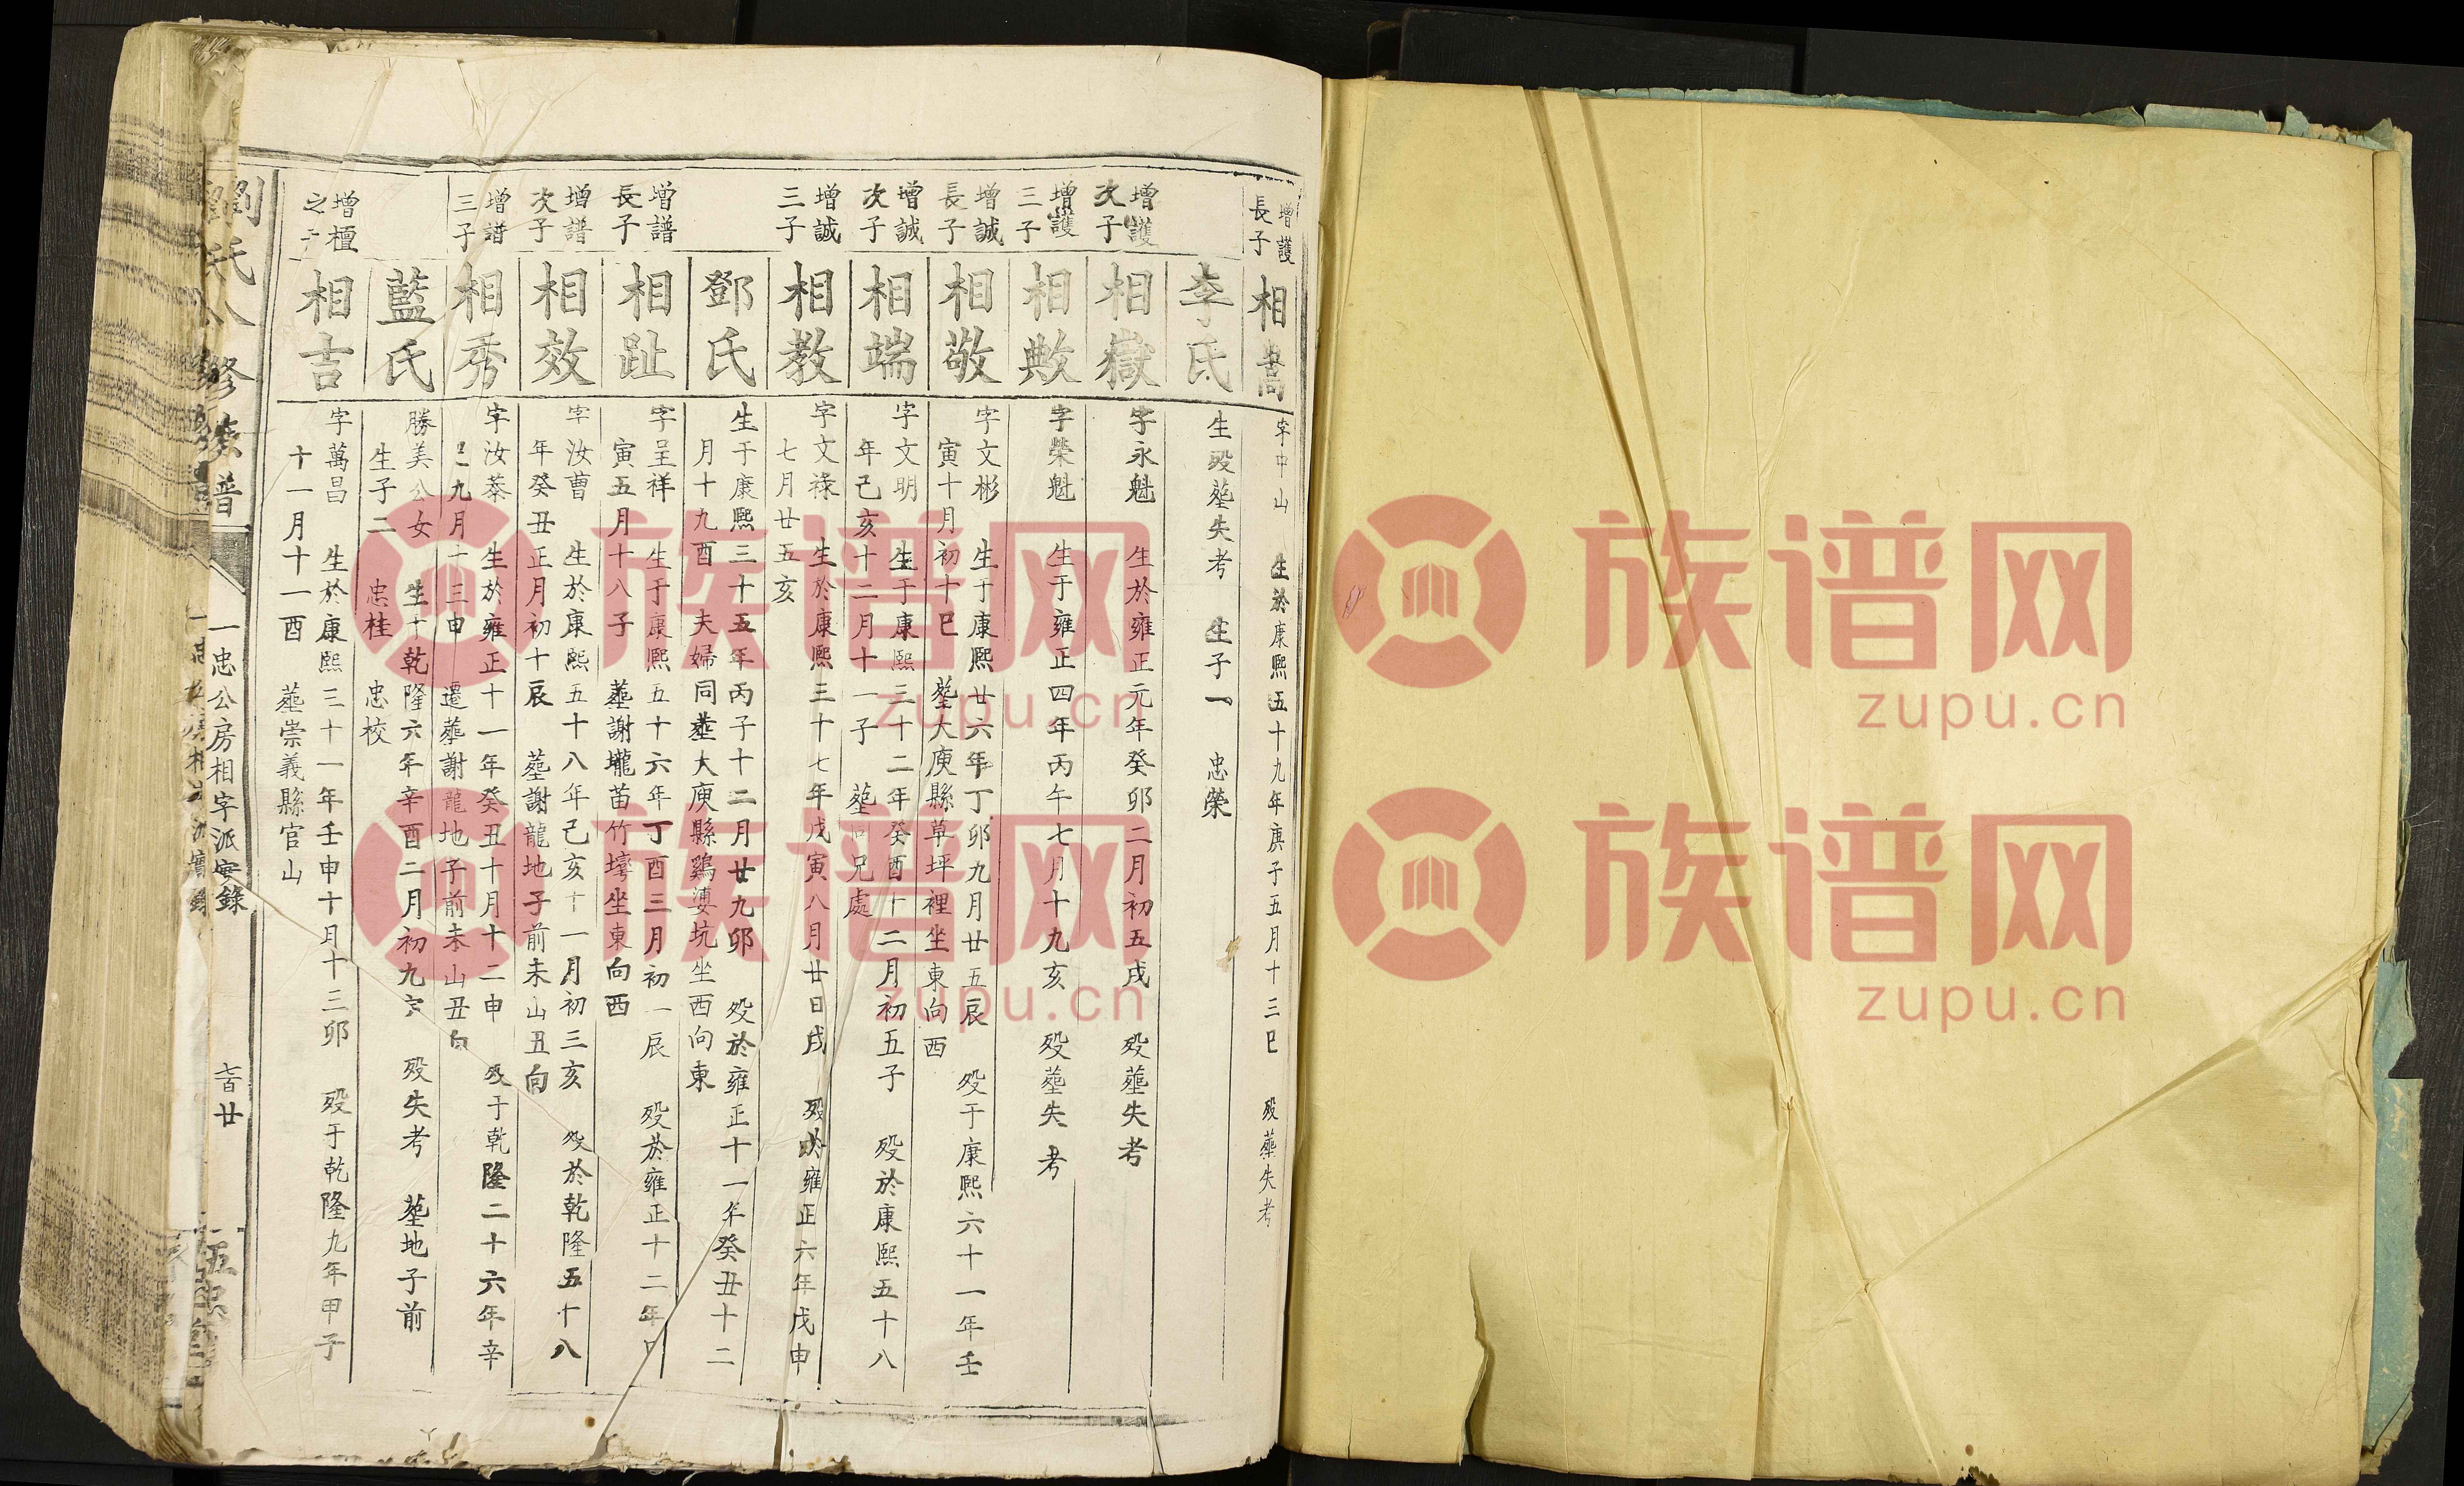 增護
長子
相嵩
字中山 生於康熙五十九年庚子五月十三巳 歿葬失考
李氏
生歿塟失考 生子一 忠榮
增護
次子
相嶽
字永魁 生於雍正元年癸卯二月初五戌 歿塟失考
增護
三子
相敟
字榮魁 生于雍正四年丙午七月十九亥 歿塟失考
增誠
長子
相敬
字文彬 生于康熙廿六年丁卯九月廿五辰 歿于康熙六十一年壬
寅十月初十巳 塟大庾縣草坪裡坐東向西
增誠
次子
相端
字文明 生于康熙三十二年癸酉十二月初五子 歿於康熙五十八
年己亥十二月十一子 塟同兄處
增誠
三子
相教
字文祿 生於康熙三十七年戊寅八月廿日戌 歿於雍正六年戊申
七月廿五亥
鄧氏
生于康熙三十五年丙子十二月廿九卯 歿於雍正十一年癸丑十二
月十九酉 夫婦同塟大庾縣鷄婆坑坐西向東
增譜
長子
相趾
字呈祥 生于康熙五十六年丁酉三月初一辰 歿於雍正十二年
寅五月十八子 塟謝壠苗竹塆坐東向西
增譜
次子
相效
字汝曹 生於康熙五十八年己亥十一月初三亥 歿於乾隆五十八
年癸丑正月初十辰 塟謝龍地子前未山丑向
增譜
三子
相秀
字汝蓁 生於雍正十一年癸丑十月十二申 歿于乾隆二十六年辛
巳九月十三申 遷塟謝龍地子前未山丑向
藍氏
勝美公女 生于乾隆六年辛酉二月初九亥 歿失考 塟地子前
生子二 忠桂 忠校
增檀
之子
相吉
字萬昌 生於康熙三十一年壬申十月十三卯 歿于乾隆九年甲子
十一月十一酉 塟崇義縣官山
劉氏八修族譜
一忠公房相字派實錄
七百廿
五忠堂
族谱网
zupu.cn
族谱网
zupu.cn
族谱网
zupu.cn
族谱网
zupu.cn